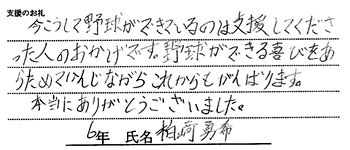 支援のお礼
今こうして野球ができているのは支援してくださ
った人のおかげです。野球ができる喜びをあ
らためてかんじながらこれからもがんばります。
本当にありがとうございました。
6年 氏名 柏崎勇希